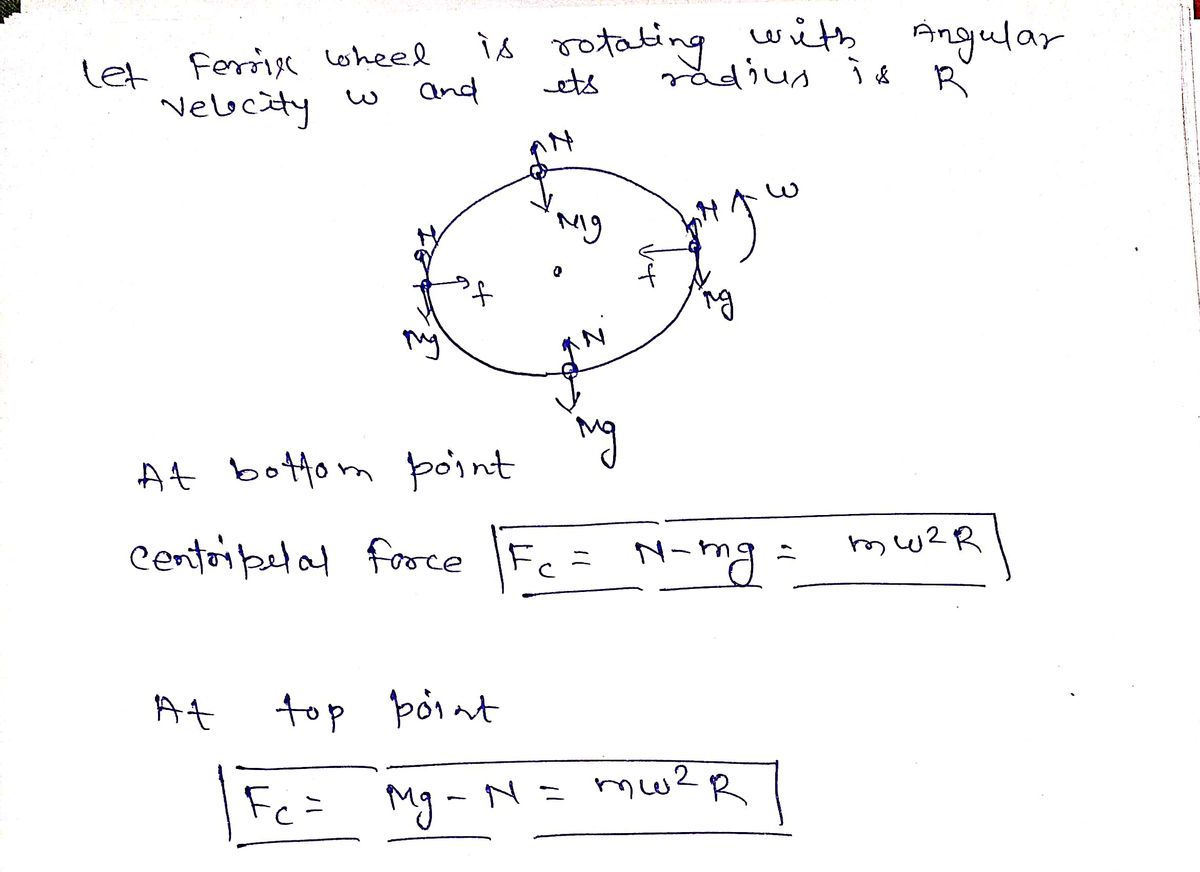 let Ferris wheel is rotating with Angular
velocity w and its radius is R
N
Mg
N
w
N
f
f
Mg
Mg
N
Mg
At bottom point
centripetal force Fc = N-mg = mw²R
At top point
Fc = Mg - N = mw²R